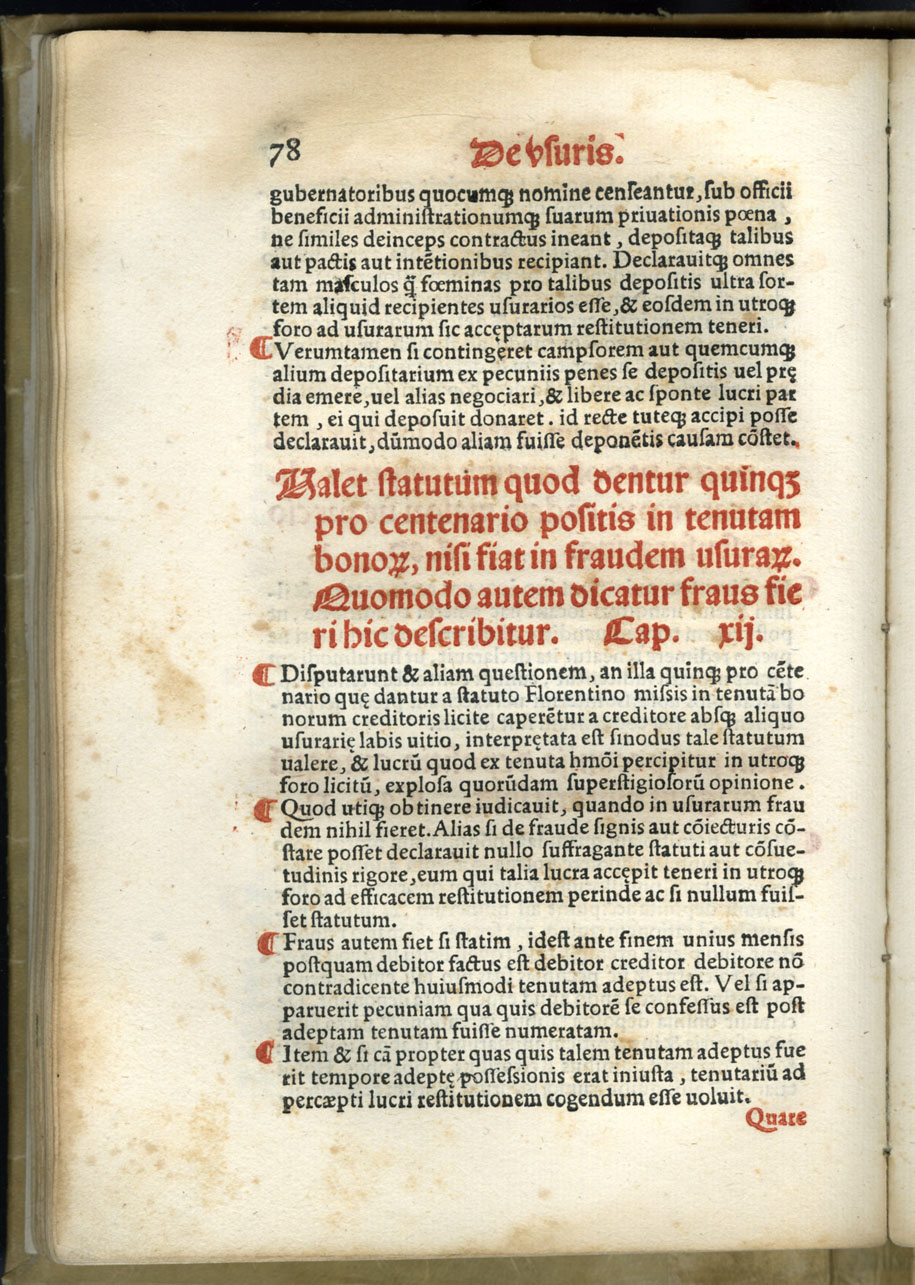 78 De vſuris.
gubernatoribus quocumqꝫ nomine cenſeantur, ſub officii
beneficii adminiſtrationumqꝫ ſuarum priuationis pœna ,
ne ſimiles deinceps contractus ineant , depoſitaqꝫ talibus
aut pactis aut intẽtionibus recipiant. Declarauitqꝫ omnes
tam maſculos q̃ fœminas pro talibus depoſitis ultra ſor-
tem aliquid recipientes uſurarios eſſe, & eoſdem in utroqꝫ
foro ad uſurarum ſic accęptarum reſtitutionem teneri.
¶ Verumtamen ſi contingęret campſorem aut quemcumqꝫ
alium depoſitarium ex pecuniis penes ſe depoſitis uel prę
dia emere, uel alias negociari, & libere ac ſponte lucri par
tem , ei qui depoſuit donaret. id recte tuteqꝫ accipi poſſe
declarauit, dũmodo aliam fuiſſe deponẽtis cauſam cõſtet.
Valet ſtatutum quod dentur quinqꝫ
pro centenario poſitis in tenutam
bonoꝝ, niſi fiat in fraudem uſuraꝝ.
Quomodo autem dicatur fraus fie
ri hic deſcribitur. Cap. xij.
¶ Diſputarunt & aliam queſtionem, an illa quinqꝫ pro cẽte
nario quę dantur a ſtatuto Florentino miſsis in tenutã bo
norum creditoris licite caperẽtur a creditore abſqꝫ aliquo
uſurarię labis uitio, interprętata eſt ſinodus tale ſtatutum
ualere, & lucrũ quod ex tenuta hmõi percipitur in utroqꝫ
foro licitũ, exploſa quorũdam ſuperſtigioſorũ opinione.
¶ Quod utiqꝫ obtinere iudicauit, quando in uſurarum frau
dem nihil fieret. Alias ſi de fraude ſignis aut cõiecturis cõ-
ſtare poſſet declarauit nullo ſuffragante ſtatuti aut cõſue-
tudinis rigore, eum qui talia lucra accępit teneri in utroqꝫ
foro ad efficacem reſtitutionem perinde ac ſi nullum fuiſ-
ſet ſtatutum.
¶ Fraus autem fiet ſi ſtatim , ideſt ante finem unius menſis
poſtquam debitor factus eſt debitor creditor debitore nõ
contradicente huiuſmodi tenutam adeptus eſt. Vel ſi ap-
paruerit pecuniam qua quis debitorẽ ſe confeſſus eſt poſt
adeptam tenutam fuiſſe numeratam.
¶ Item & ſi cã propter quas quis talem tenutam adeptus fue
rit tempore adeptę poſſeſsionis erat iniuſta , tenutariũ ad
percæpti lucri reſtitutionem cogendum eſſe uoluit.
Quare